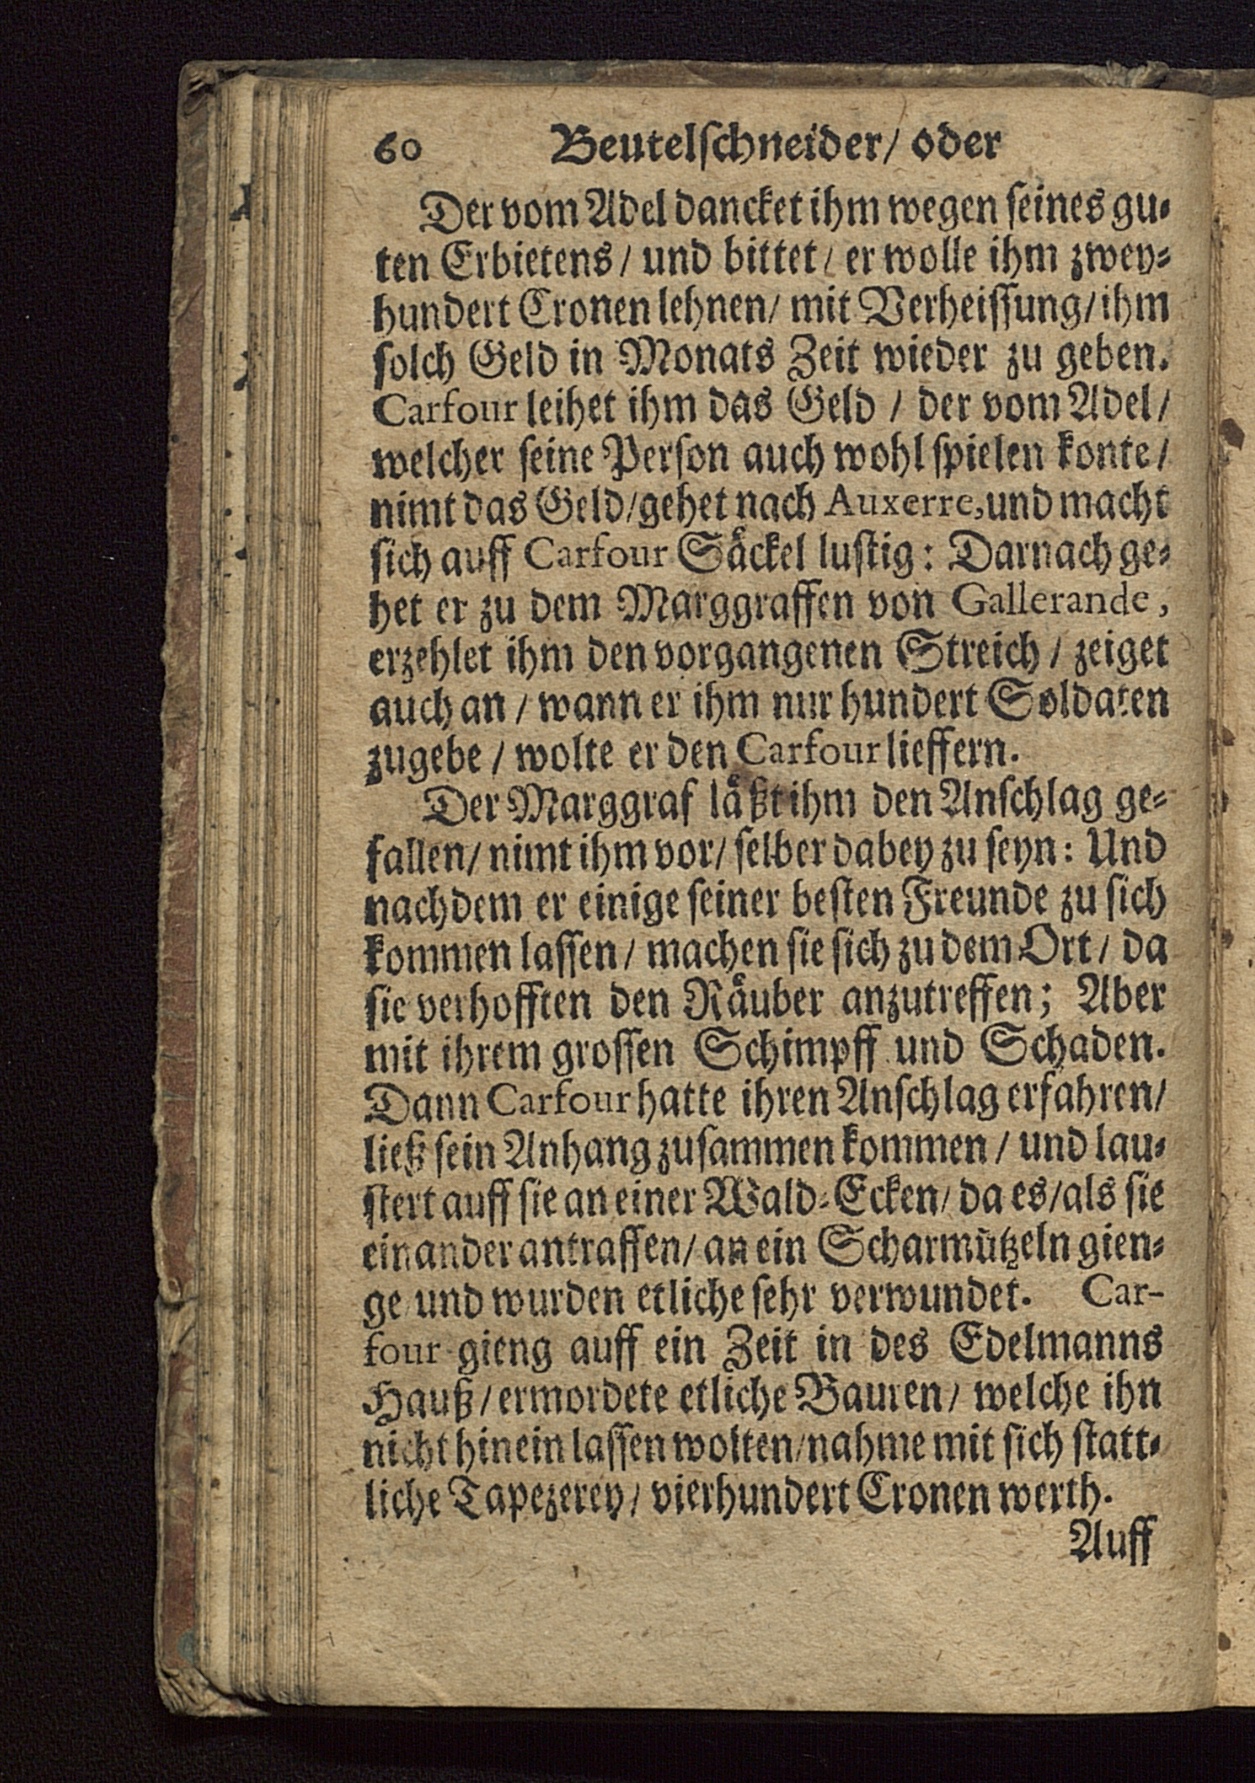 60 Beutelschneider/ oder
Der vom Adel dancket ihm wegen seines gu-
ten Erbietens/ und bittet/ er wolle ihm zwey-
hundert Cronen lehnen/ mit Verheissung/ ihm
solch Geld in Monats Zeit wieder zu geben.
Carfour leihet ihm das Geld / der vom Adel/
welcher seine Person auch wohl spielen konte/
nimt das Geld/ gehet nach Auxerre, und macht
sich auff Carfour Säckel lustig: Darnach ge-
het er zu dem Marggraffen von Gallerande,
erzehlet ihm den vorgangenen Streich / zeiget
auch an / wann er ihm nur hundert Soldaten
zugebe / wolte er den Carfour lieffern.
Der Marggraf läßt ihm den Anschlag ge-
fallen/ nimt ihm vor/ selber dabey zu seyn: Und
nachdem er einige seiner besten Freunde zu sich
kommen lassen/ machen sie sich zu dem Ort/ da
sie verhofften den Räuber anzutreffen; Aber
mit ihrem grossen Schimpff und Schaden.
Dann Carfour hatte ihren Anschlag erfahren/
ließ sein Anhang zusammen kommen / und lau-
stert auff sie an einer Wald-Ecken/ da es/ als sie
einander antraffen/ an ein Scharmützeln gien-
ge und wurden etliche sehr verwundet. Car-
four gieng auff ein Zeit in des Edelmanns
Hauß/ ermordete etliche Bauren/ welche ihn
nicht hinein lassen wolten/ nahme mit sich statt-
liche Tapezerey/ vierhundert Cronen werth.
Auff